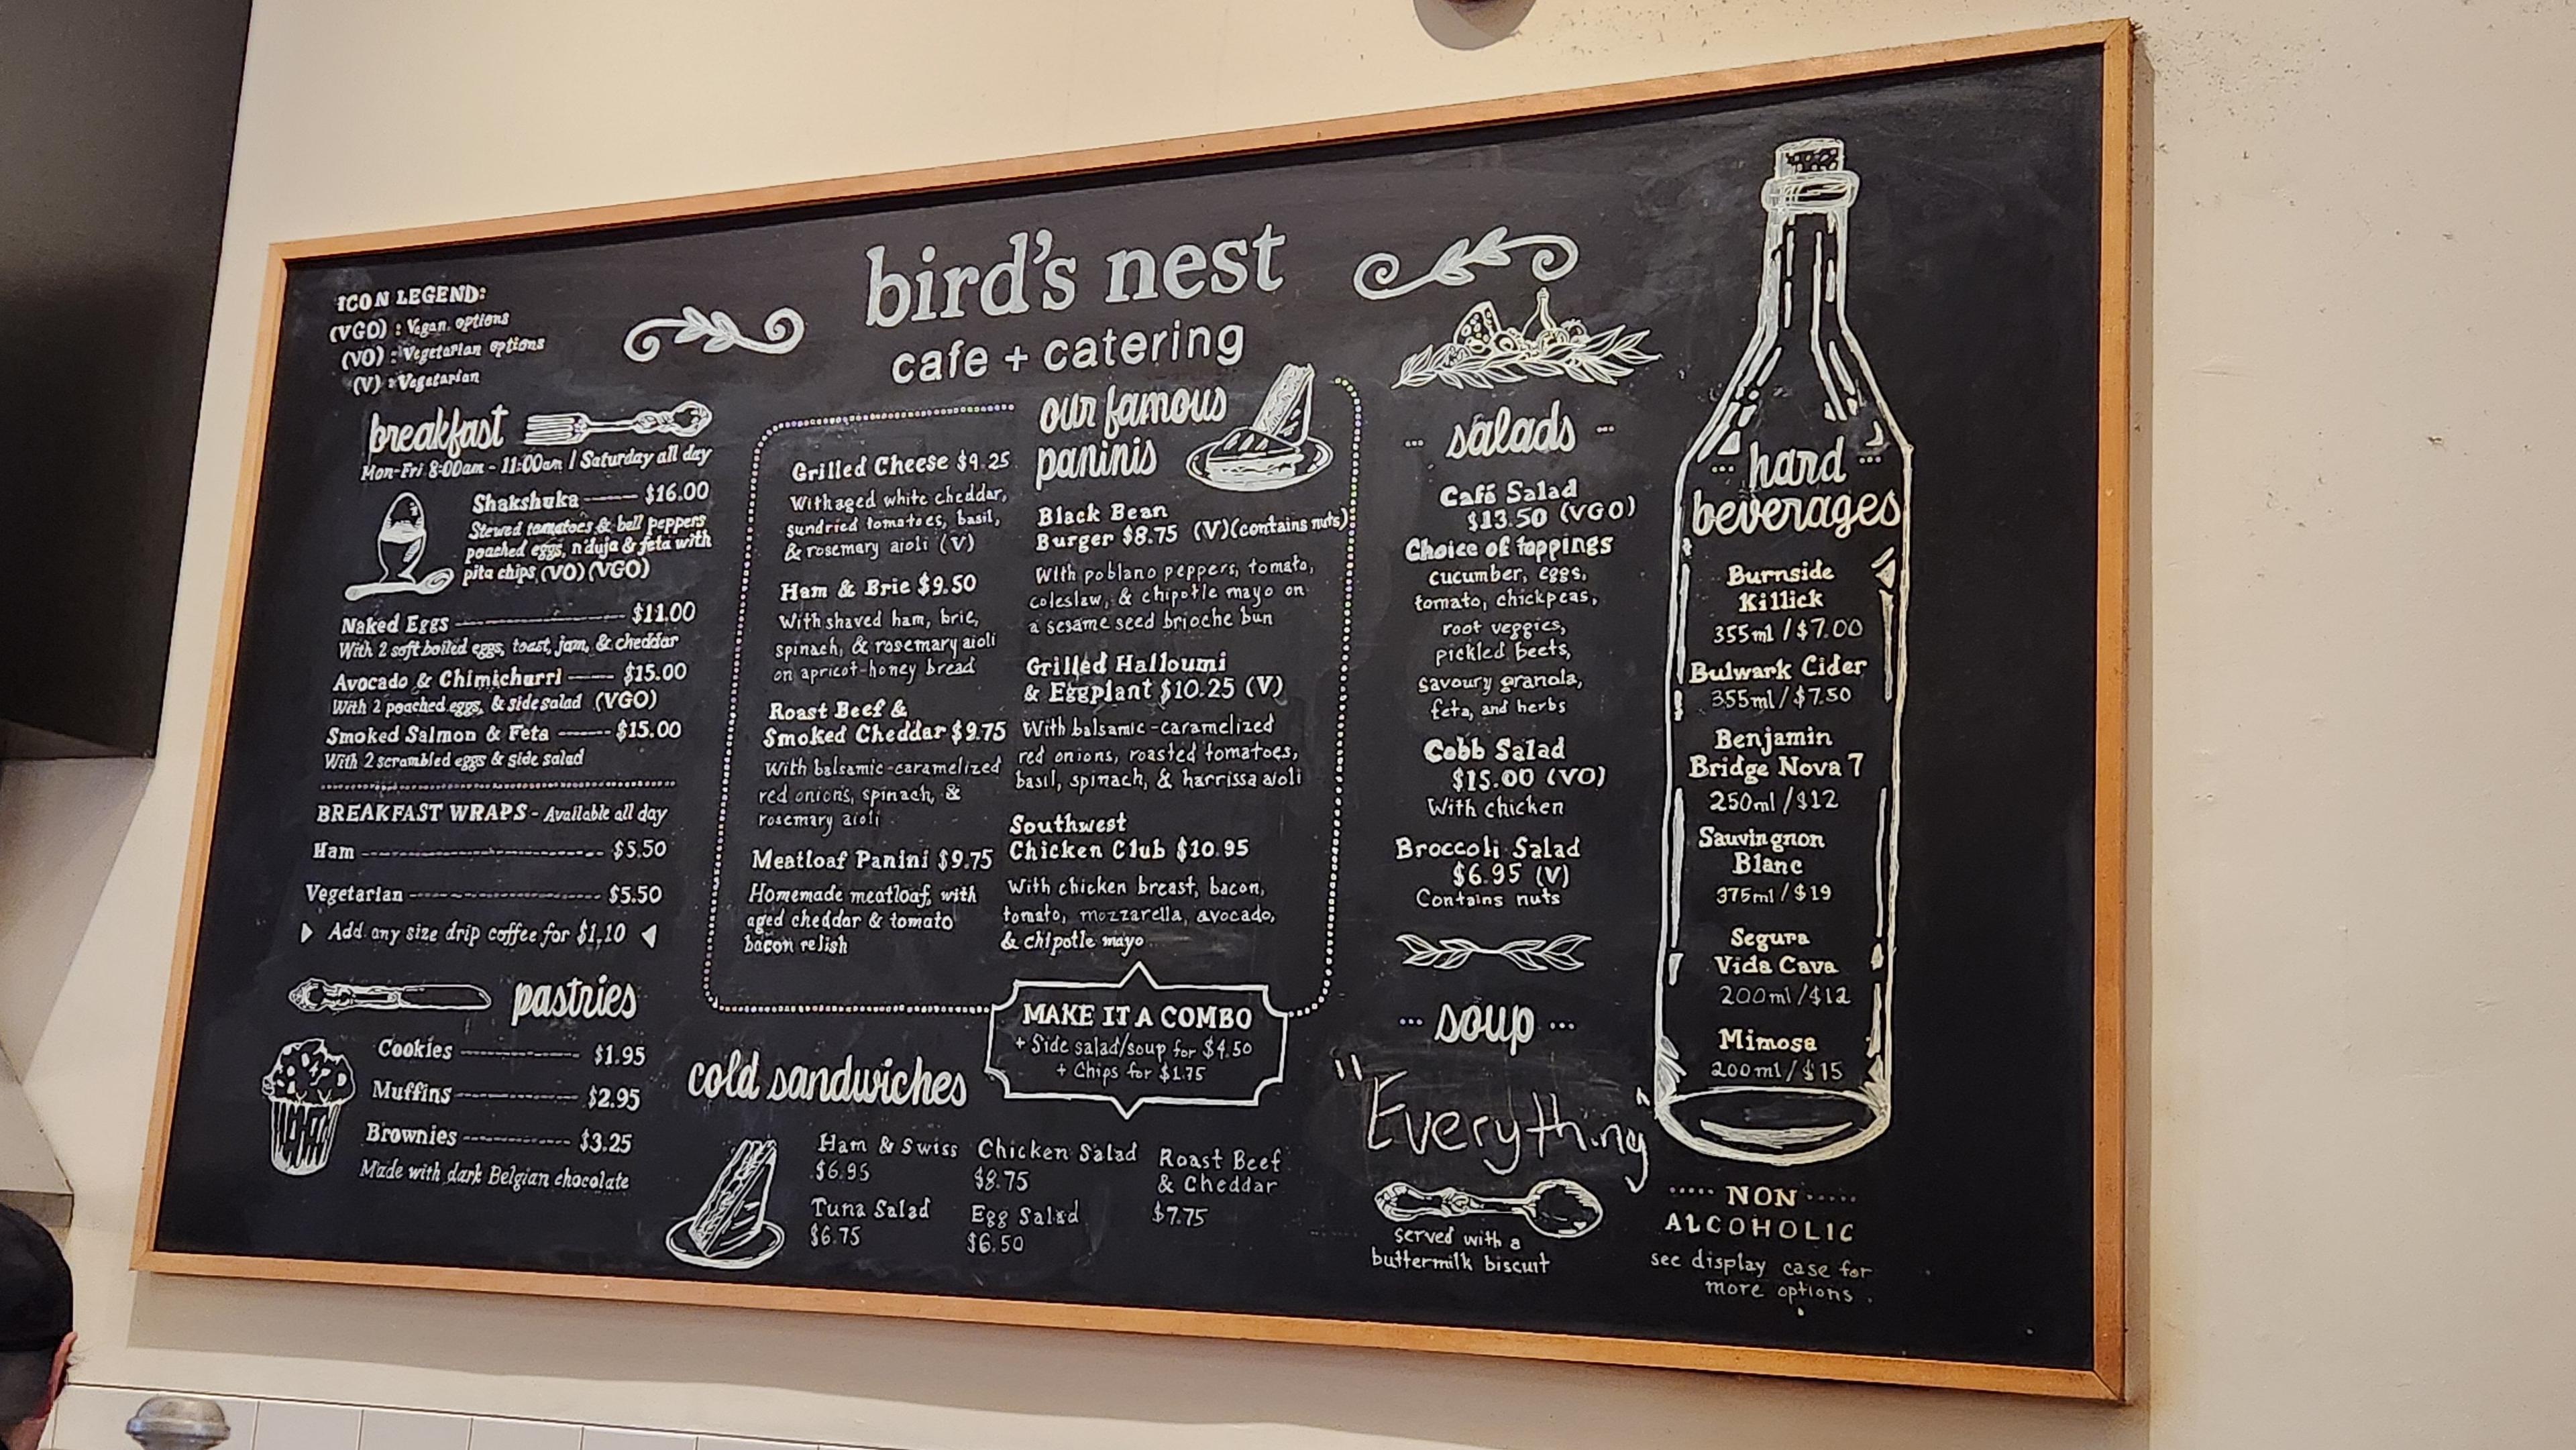 bird's nest
cafe + catering
ICON LEGEND:
(VGO) : Vegan options
(VO) : Vegetarian options
(V) : Vegetarian
breakfast
Mon-Fri 8:00am - 11:00am / Saturday all day
Shakshuka $16.00
Stewed tomatoes & bell peppers
poached eggs, n'duja & feta with
pita chips (VO) (VGO)
Naked Eggs $11.00
With 2 soft boiled eggs, toast, jam, & cheddar
Avocado & Chimichurri $15.00
With 2 poached eggs, & side salad (VGO)
Smoked Salmon & Feta $15.00
With 2 scrambled eggs & side salad
BREAKFAST WRAPS - Available all day
Ham $5.50
Vegetarian $5.50
Add any size drip coffee for $1.10
pastries
Cookies $1.95
Muffins $2.95
Brownies $3.25
Made with dark Belgian chocolate
our famous
paninis
Grilled Cheese $9.25
With aged white cheddar,
sundried tomatoes, basil,
& rosemary aioli (V)
Ham & Brie $9.50
With shaved ham, brie,
spinach, & rosemary aioli
on apricot-honey bread
Roast Beef &
Smoked Cheddar $9.75
With balsamic-caramelized
red onions, spinach, &
rosemary aioli
Meatloaf Panini $9.75
Homemade meatloaf, with
aged cheddar & tomato
bacon relish
Black Bean
Burger $8.75 (V) (contains nuts)
With poblano peppers, tomato,
coleslaw, & chipotle mayo on
a sesame seed brioche bun
Grilled Halloumi
& Eggplant $10.25 (V)
With balsamic-caramelized
red onions, roasted tomatoes,
basil, spinach, & harrissa aioli
Southwest
Chicken Club $10.95
With chicken breast, bacon,
tomato, mozzarella, avocado,
& chipotle mayo
MAKE IT A COMBO
+ Side salad/soup for $4.50
+ Chips for $1.75
cold sandwiches
Ham & Swiss
$6.95
Tuna Salad
$6.75
Chicken Salad
$8.75
Egg Salad
$6.50
Roast Beef
& Cheddar
$7.75
salads
Café Salad
$13.50 (VGO)
Choice of toppings
cucumber, eggs,
tomato, chickpeas,
root veggies,
pickled beets,
savoury granola,
feta, and herbs
Cobb Salad
$15.00 (VO)
With chicken
Broccoli Salad
$6.95 (V)
Contains nuts
soup
"Everything"
served with a
buttermilk biscuit
hard
beverages
Burnside
Killick
355ml / $7.00
Bulwark Cider
355ml / $7.50
Benjamin
Bridge Nova 7
250ml / $12
Sauvingnon
Blanc
375ml / $19
Segura
Vida Cava
200ml / $12
Mimosa
200ml / $15
NON
ALCOHOLIC
see display case for
more options.